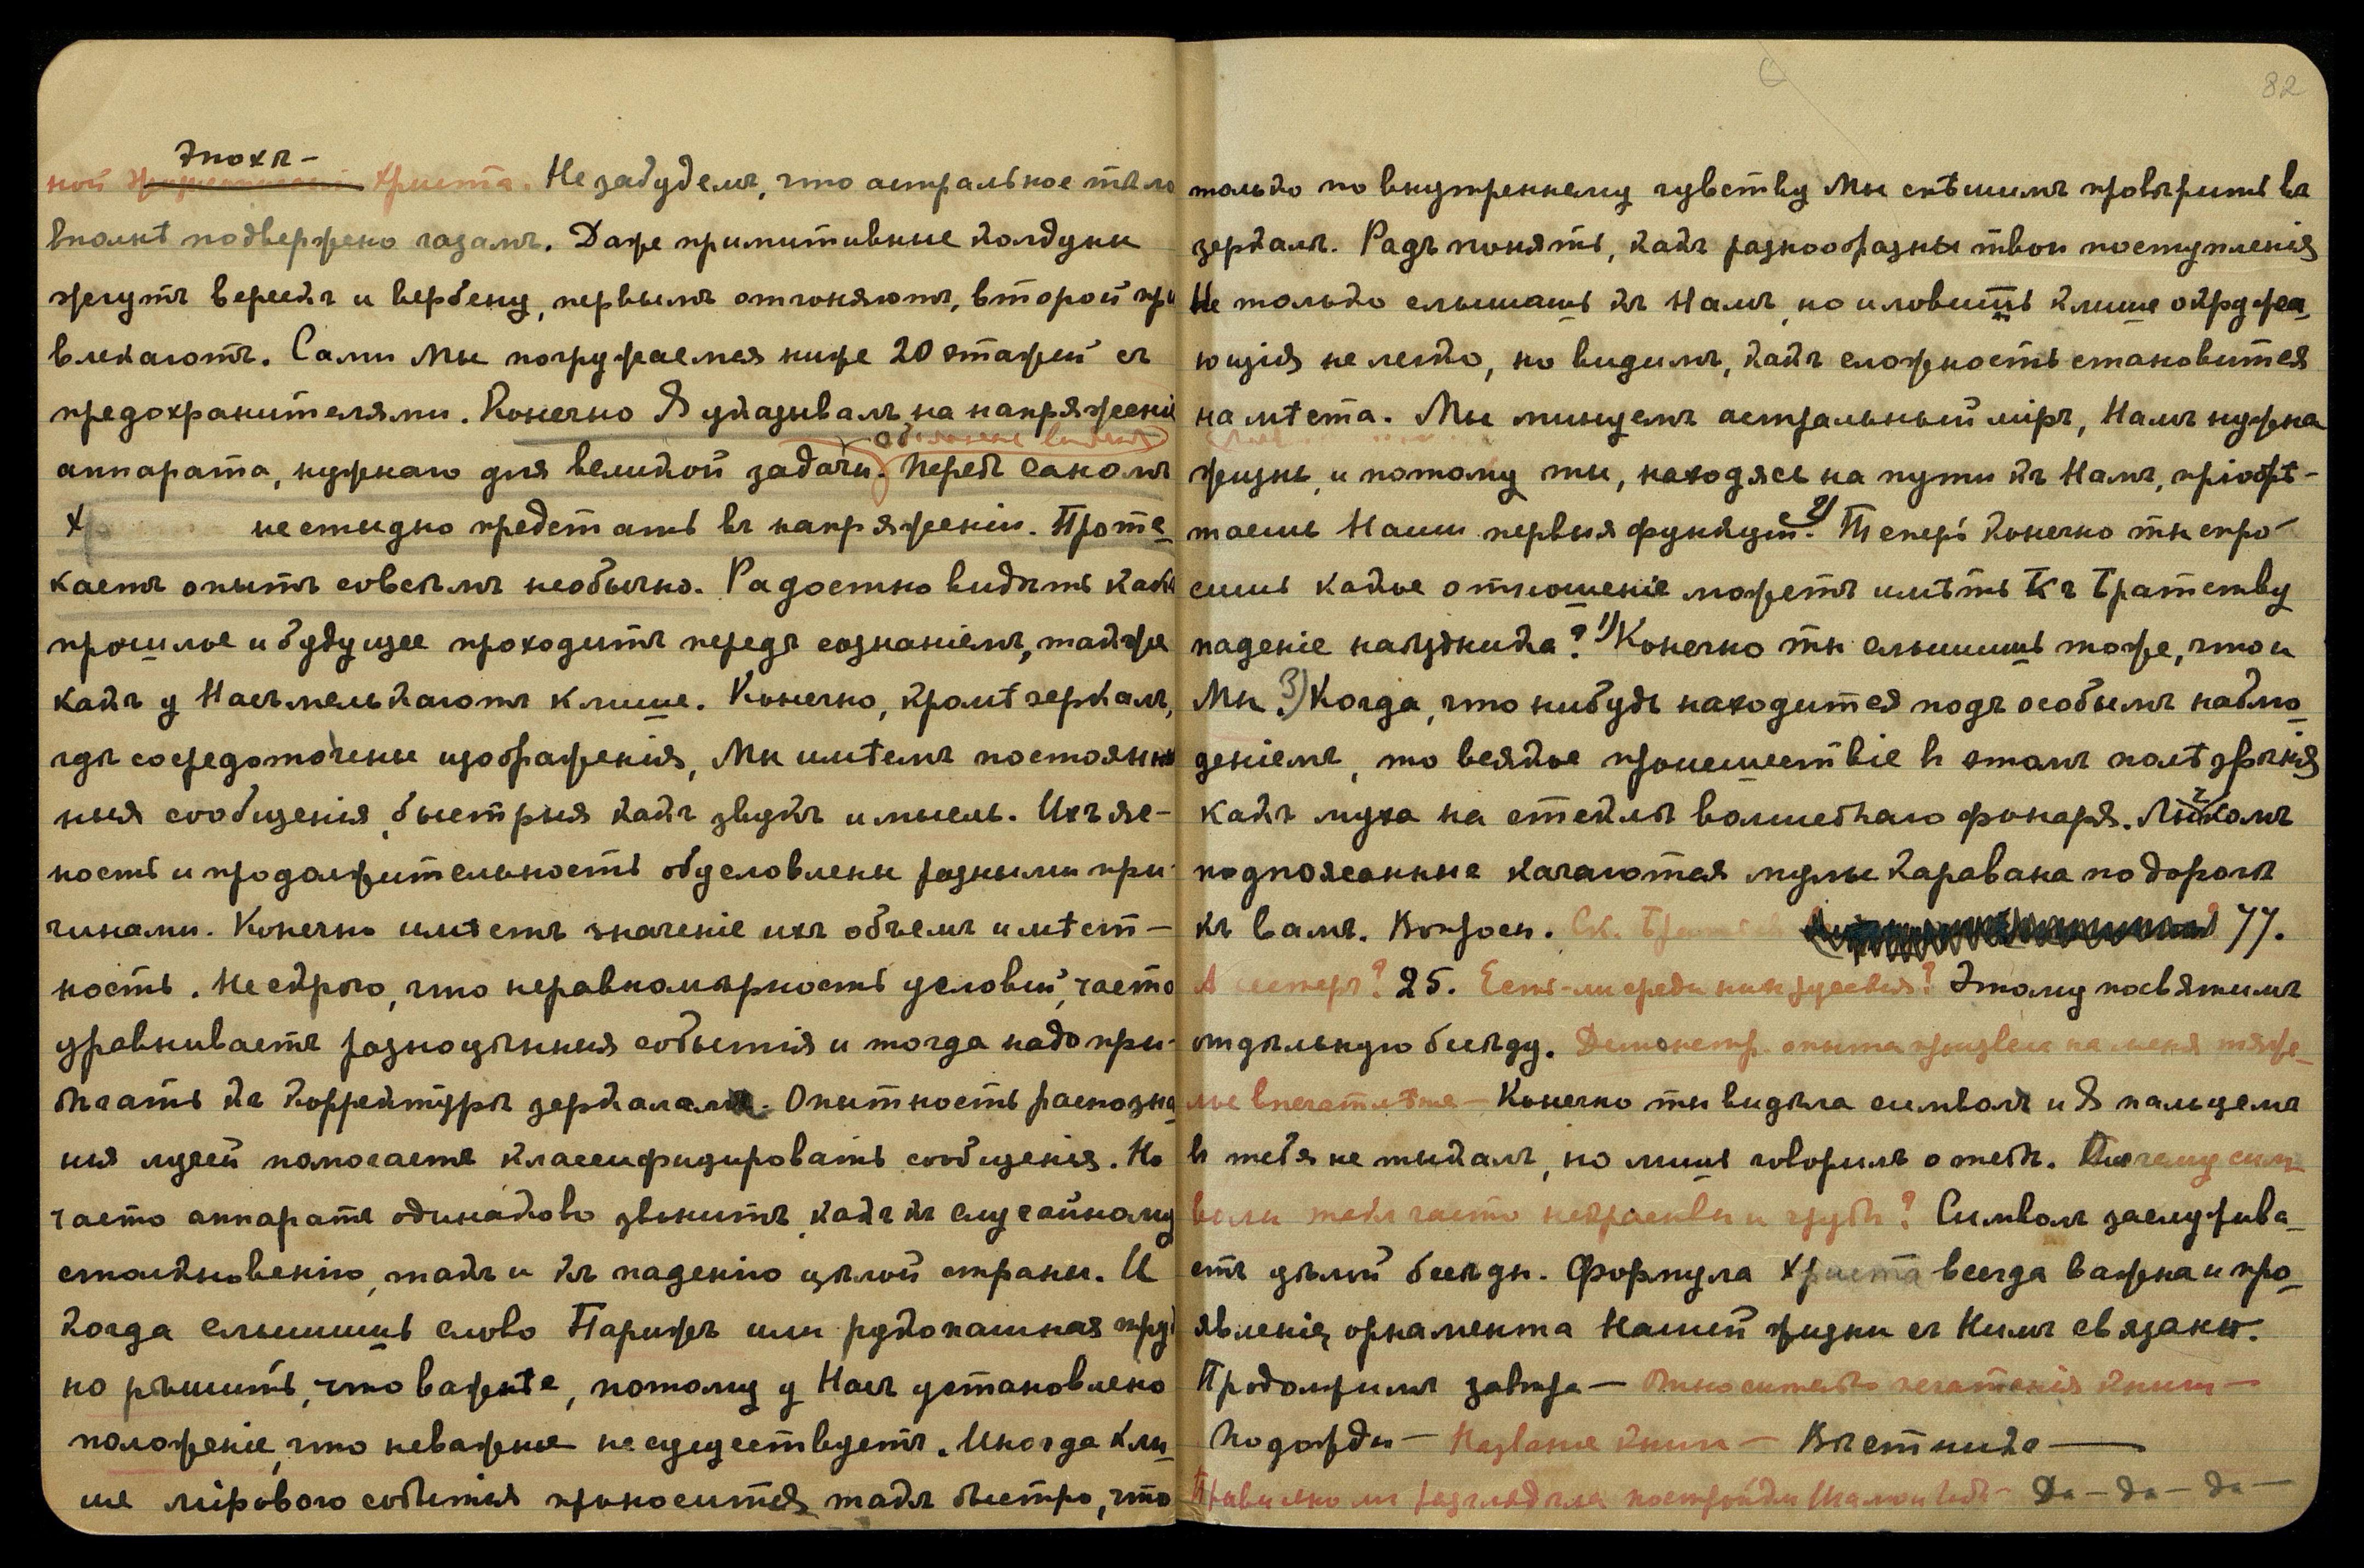 эпохѣ –
ной Христа. Не забудемъ, что астральное тѣло
вполнѣ подвержено газамъ. Даже примитивные колдуны
жгутъ верескъ и вербену, первымъ отгоняютъ, второй при
влекаютъ. Сами Мы погружаемся ниже 20 этажей съ
предохранителями. Конечно Я указывалъ на напряженіе
аппарата, нужнаго для великой задачи. Передъ саномъ
не стыдно предстать въ напряженіи. Проте-
каетъ опытъ совсѣмъ необычно. Радостно видѣть какъ
прошлое и будущее проходитъ передъ сознаніемъ, также
какъ у Насъ мелькаютъ клише. Конечно, кромѣ зеркалъ,
гдѣ сосредоточены изображенія, Мы имѣемъ постоян
ныя сообщенія, быстрыя какъ звукъ и мысль. Ихъ яс-
ность и продолжительность обусловлены разными при-
чинами. Конечно имѣетъ значеніе ихъ объемъ и мѣст-
ность. Не скрою, что неравномѣрность условій, часто
уравниваетъ разноцѣнныя событія и тогда надо при-
бѣгать къ корректурѣ зеркалами. Опытность распозна
ния лучей помогаетъ классифицировать сообщенія. Но
часто аппаратъ одинаково звонитъ, какъ къ случайному
столкновенію, такъ и къ паденію цѣлой страны. И
когда слышишь слово Парижъ или рукопашная труд
но рѣшить, что важнѣе, потому у Насъ установлено
положеніе, что неважное не существуетъ. Иногда кли-
ше мірового событія проносится такъ быстро, что
82
только по внутреннему чувству Мы спѣшимъ провѣрить въ
зеркалѣ. Радъ понять, какъ разнообразны твои поступленія
Не только слышать къ Намъ, но и ловить клише окружа-
ющія не легко, но видимъ, какъ сложность становится
на мѣста. Мы минуемъ астральный міръ, Намъ нужна
жизнь, и потому ты, находясь на пути къ Намъ, пріобрѣ-
таешь Наши первыя функціи. 2) Теперь конечно ты спро-
сишь какое отношеніе можетъ имѣть къ Братству
паденіе наѣздника? 1) Конечно ты слышишь тоже, что и
Мы. 3) Когда, что нибудь находится подъ особымъ наблю-
деніемъ, то всякое происшествіе въ этомъ полѣ зрѣнія
какъ муха на стеклѣ волшебнаго фонаря. Лыкомъ
подпоясанные качаются мулы каравана по дорогѣ
къ вамъ. Вопросы. 77.
А сестеръ? 25. Есть-ли среди нихъ русскія? Этому посвятимъ
отдѣльную бесѣду. Демонстр. опыта произвела на меня тяже-
лое впечатлѣніе – Конечно ты видѣла символъ и Я пальцемъ
въ тебя не тыкалъ, но лишь говорилъ о тебѣ. Почему сим
волы такъ часто некрасивы и грубы? Символъ заслужива-
етъ цѣлой бесѣды. Формула Христа всегда важна и про-
явленія орнамента Нашей жизни съ Нимъ связаны.
Продолжимъ завтра – Относительно печатанія книги –
Подожди – Названіе книги – Вѣстника –
Правильно ли разглядѣла постройки Да – да – да –